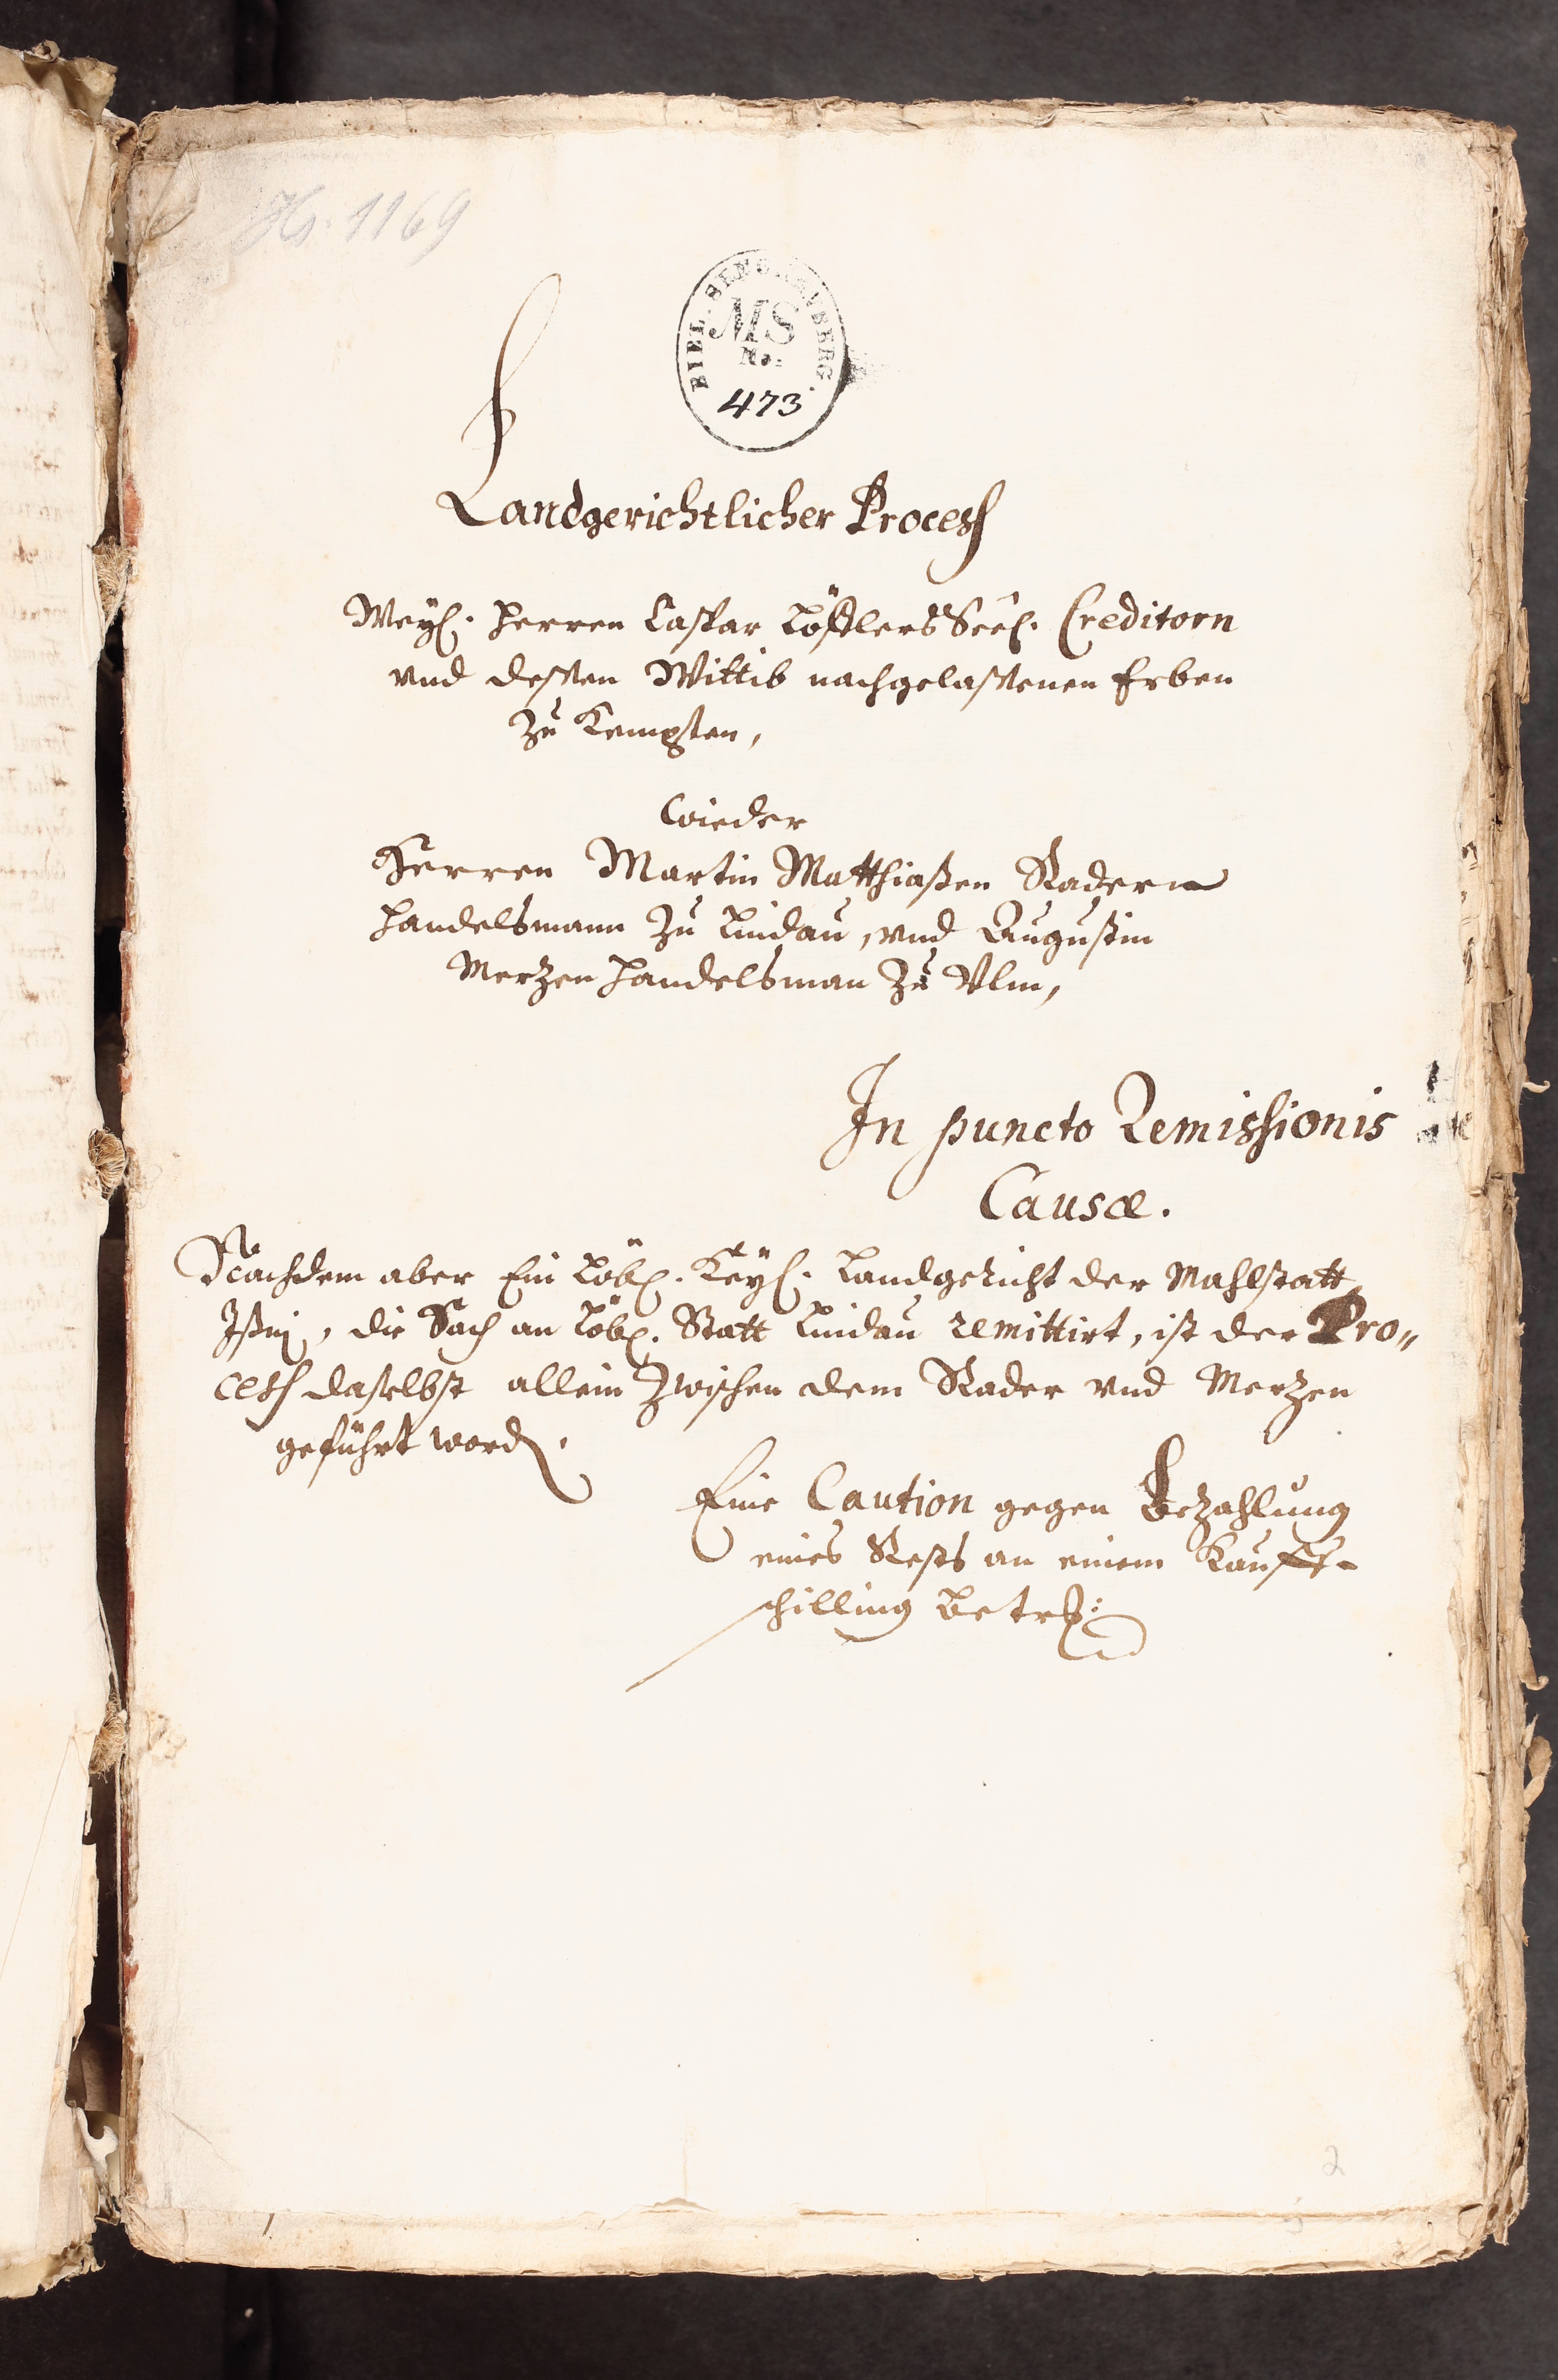 Hs. 1169
BIBL. SENCKENBERG.
MS
No.
473
Landgerichtlicher Process
Weyl. Herren Caspar Löfflers Seel. Creditorn
vnd dessen Wittib nachgelassenen Erben
zu Kempten,
wieder
Herren Martin Matthiaßen Radern
Handelsmann zu Lindau, vnd Augustin
Merzen Handelsman zu Vlm,
In puncto Remissionis
Causæ.
Nachdem aber Ein Löbl. Keyl. Landgericht der Mahlstatt
Ißni, die Sach an Löbl. Statt Lindau remittirt, ist der Pro„
cess daselbst allein zwischen dem Rader vnd Merzen
geführt word.
Eine Caution gegen Bezahlung
eines Rests an einem Kauff-
schilling betr:
2